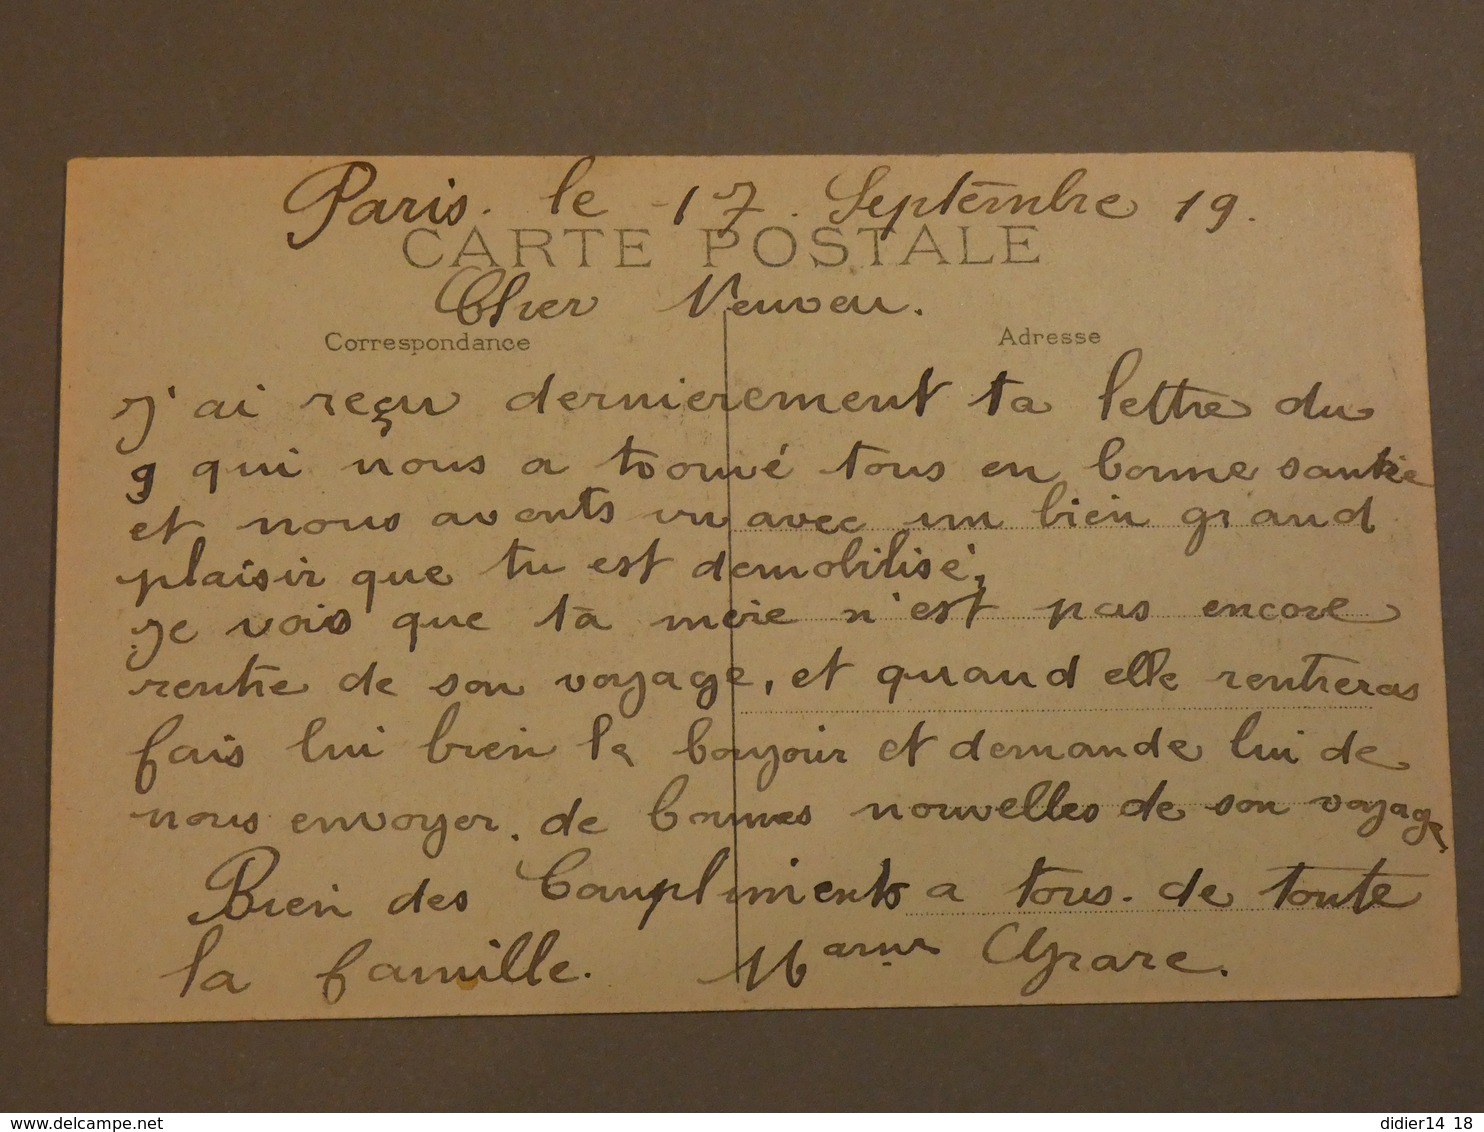 Paris. le 17. Septembre 19.
CARTE POSTALE
Cher Neuveu.
Correspondance
Adresse
J'ai reçu dernierement ta lettre du
9 qui nous a trouvé tous en bonne santée
et nous avonts vu avec un bien grand
plaisir que tu est demobilisé;
Je vois que ta mère n'est pas encore
rentre de son voyage, et quand elle rentreras
fais lui bien le bonjour et demande lui de
nous envoyer. de bonnes nouvelles de son voyage
Bien des Compliments a tous. de toute
la famille.
delcampe.net
didier14 18